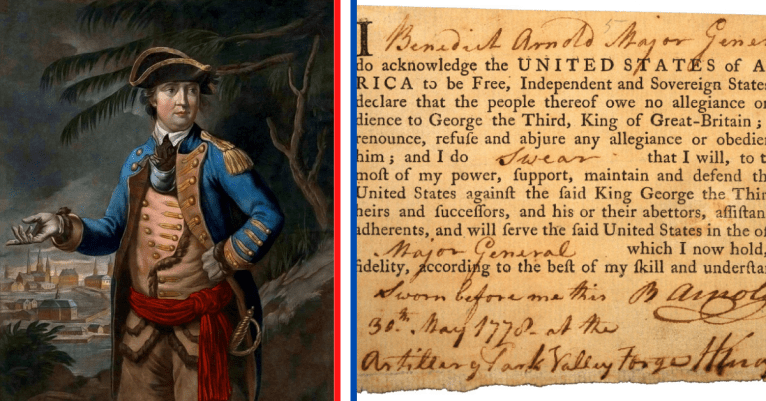 I Benedict Arnold Major Gener
do acknowledge the UNITED STATES of A
RICA to be Free, Independent and Sovereign States
declare that the people thereof owe no allegiance or
dience to George the Third, King of Great-Britain;
renounce, refuſe and abjure any allegiance or obedien
him; and I do Swear that I will, to t
moſt of my power, ſupport, maintain and defend th
United States againſt the ſaid King George the Thir
heirs and ſucceſſors, and his or their abettors, aſſiſtan
adherents, and will ſerve the ſaid United States in the of
Major General which I now hold,
fidelity, according to the beſt of my ſkill and underſtan
Sworn before me this B Arnold
30th May 1778 at the
Artillery Park Valley Forge HKnox